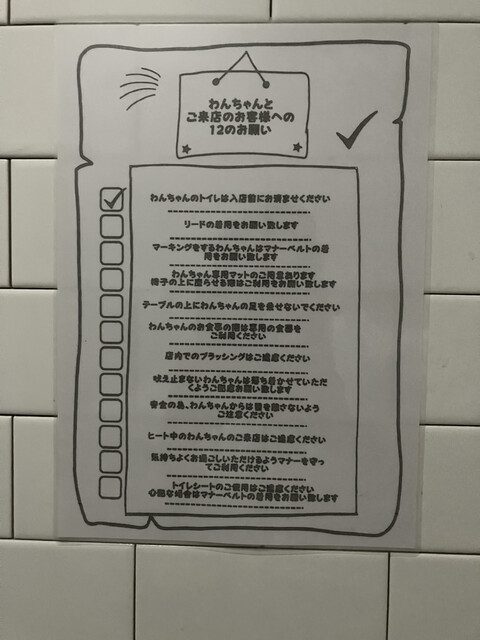 わんちゃんと
ご来店のお客様への
12のお願い
わんちゃんのトイレは入店前にお済ませください
リードの着用をお願い致します
マーキングをするわんちゃんはマナーベルトの着
用をお願い致します
わんちゃん専用マットのご用意あります
椅子の上に座らせる際はご利用をお願い致します
テーブルの上にわんちゃんの足を乗せないでください
わんちゃんのお食事の際は専用の食器を
ご利用ください
店内でのブラッシングはご遠慮ください
吠え止まないわんちゃんは落ち着かせていただ
くようご配慮お願い致します
安全の為、わんちゃんからは目を離さないよう
ご注意ください
ヒート中のわんちゃんのご来店はご遠慮ください
気持ちよくお過ごしいただけるようマナーを守っ
てご利用ください
トイレシートのご使用はご遠慮ください
心配な場合はマナーベルトの着用をお願い致します